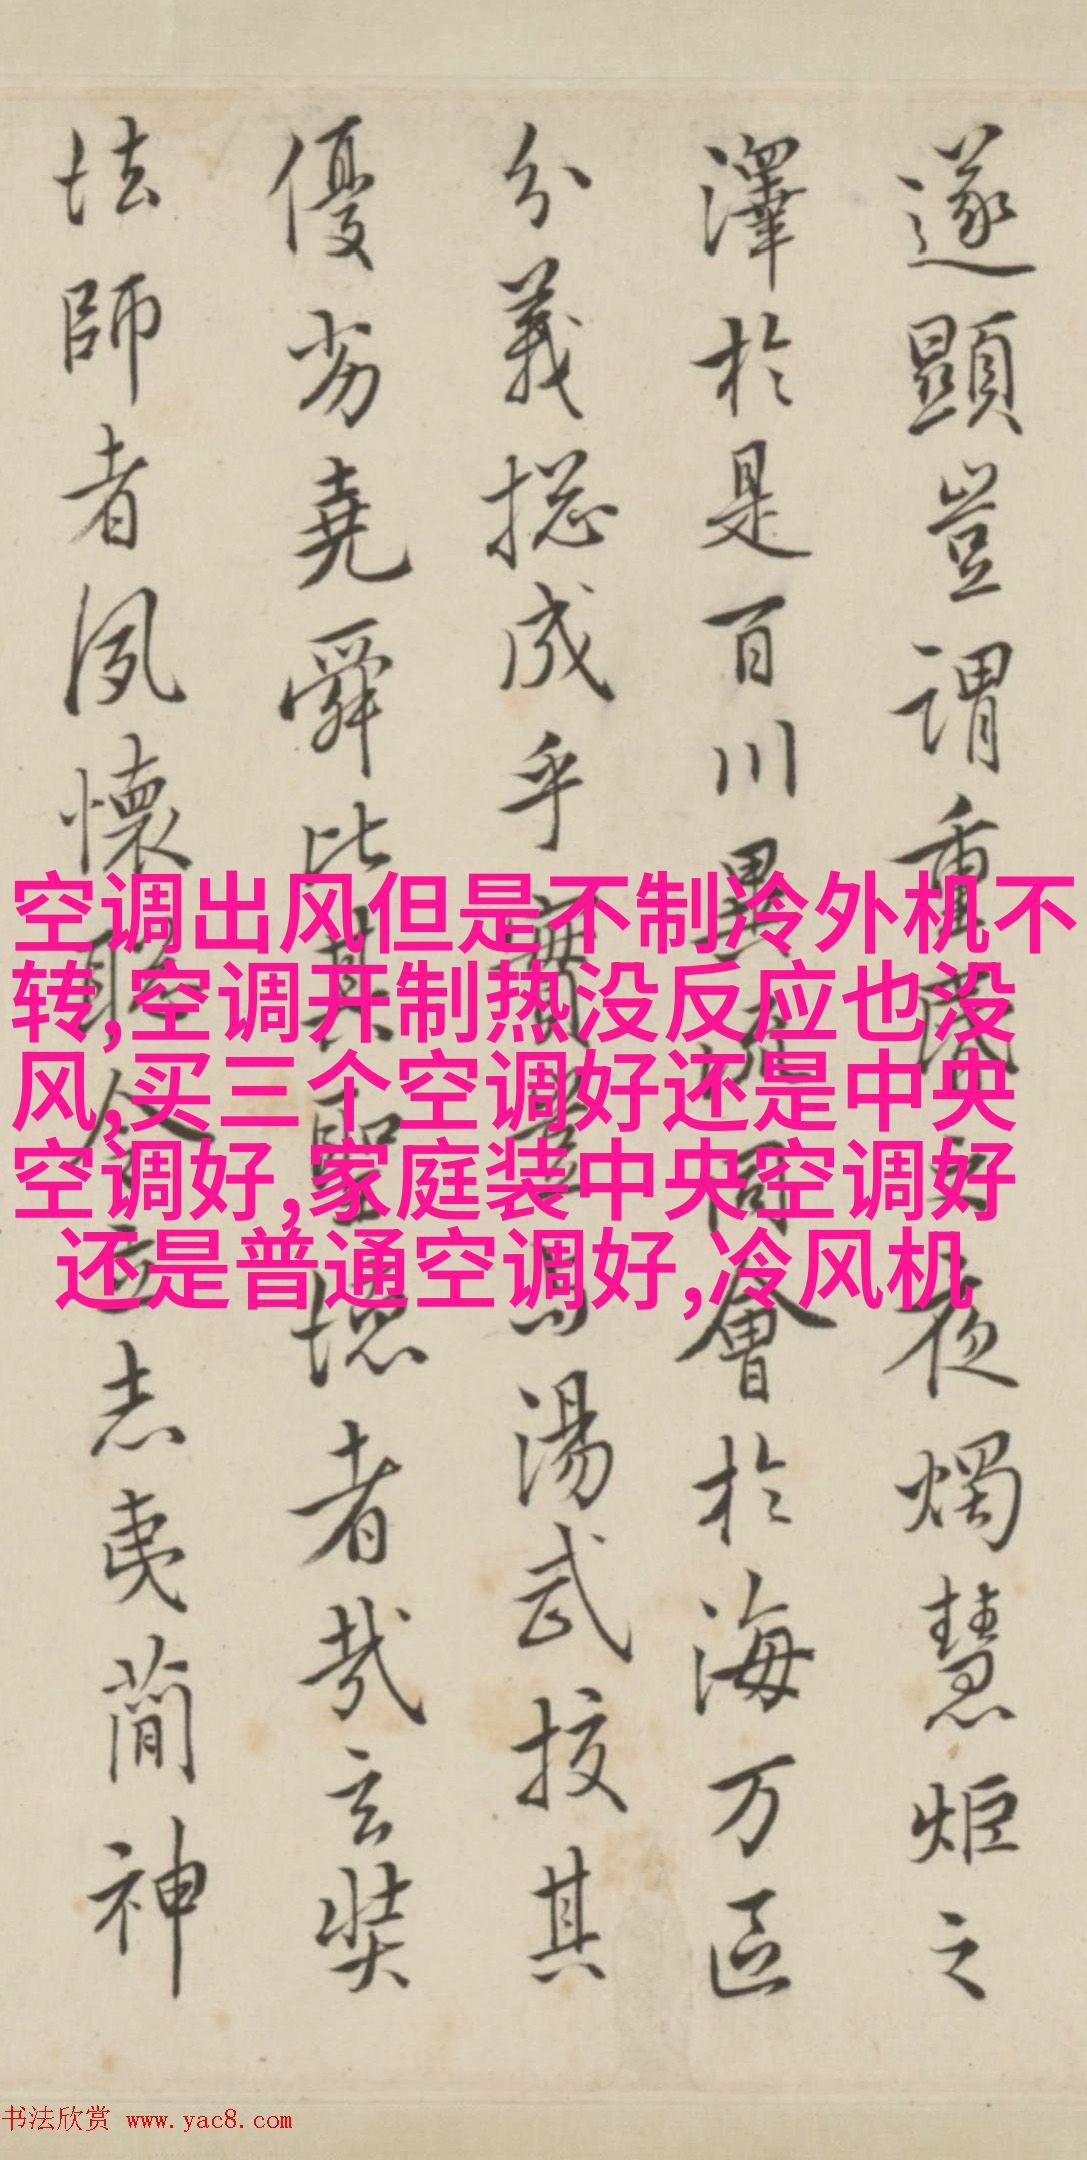 遂顯豈謂重昏之夜燭慧炬之
澤於是百川異流同會於海万區
分義捴成乎實豈與湯武挍其
優劣堯舜比其聖德者哉玄奘
法師者夙懷聰令立志夷簡神
空调出风但是不制冷外机不
转,空调开制热没反应也没
风,买三个空调好还是中央
空调好,家庭装中央空调好
还是普通空调好,冷风机
书法欣赏 www.yac8.com